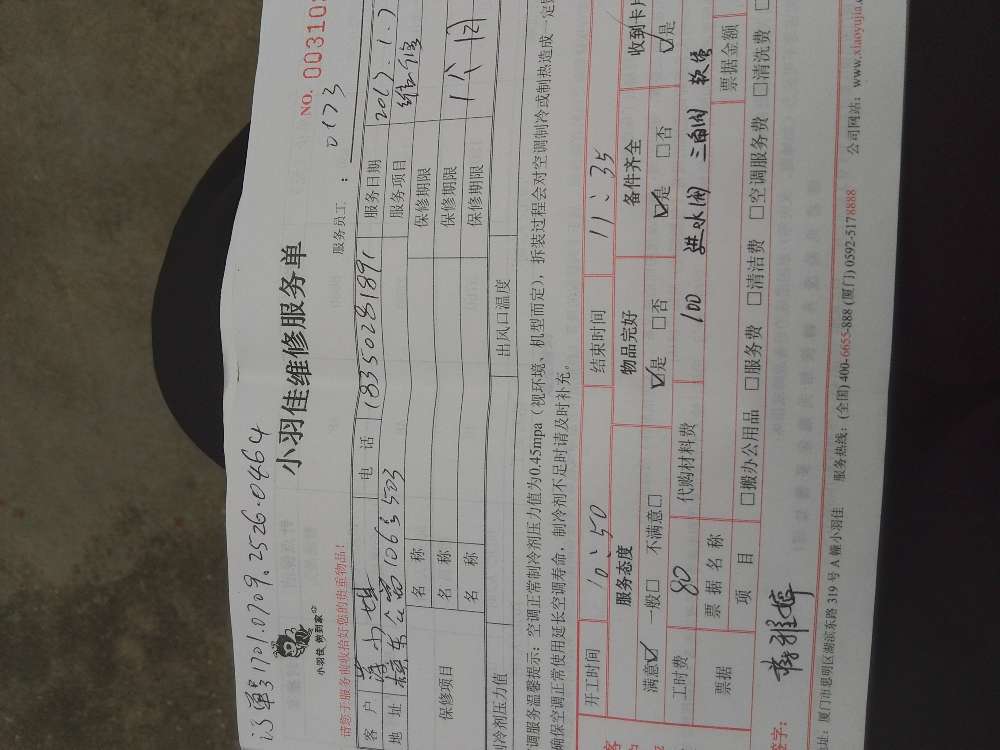 订单号1701.0709.2526.0464
小羽佳 做到家
小羽佳维修服务单
NO. 00310
请您于服务前收拾好您的贵重物品!
服务员工: 0173
客户 小姐 电话 18350281891 服务日期 2017.1.7
地址 106号503 服务项目 维修
保修项目 名称 保修期限
名称 保修期限 1个月
名称 保修期限
制冷剂压力值 出风口温度
调服务温馨提示:空调正常制冷剂压力值为0.45mpa(视环境、机型而定),拆装过程会对空调制冷或制热造成一定
确保空调正常使用延长空调寿命,制冷剂不足时请及时补充。
开工时间 10:50 结束时间 11:35
服务态度 物品完好 备件齐全 收到卡片
满意☑ 一般□ 不满意□ ☑是 □否 ☑是 □否 ☑是
工时费 80 代购材料费 100 进水阀 三角阀 软管
票据 票据名称 票据金额
项目 □搬办公用品 □服务费 □清洁费 □空调服务费 □清洗费
签字:
址:厦门市思明区湖滨东路319号A幢小羽佳 服务热线:(全国)400-6655-888(厦门)0592-5178888 公司网站:www.xiaoyujia